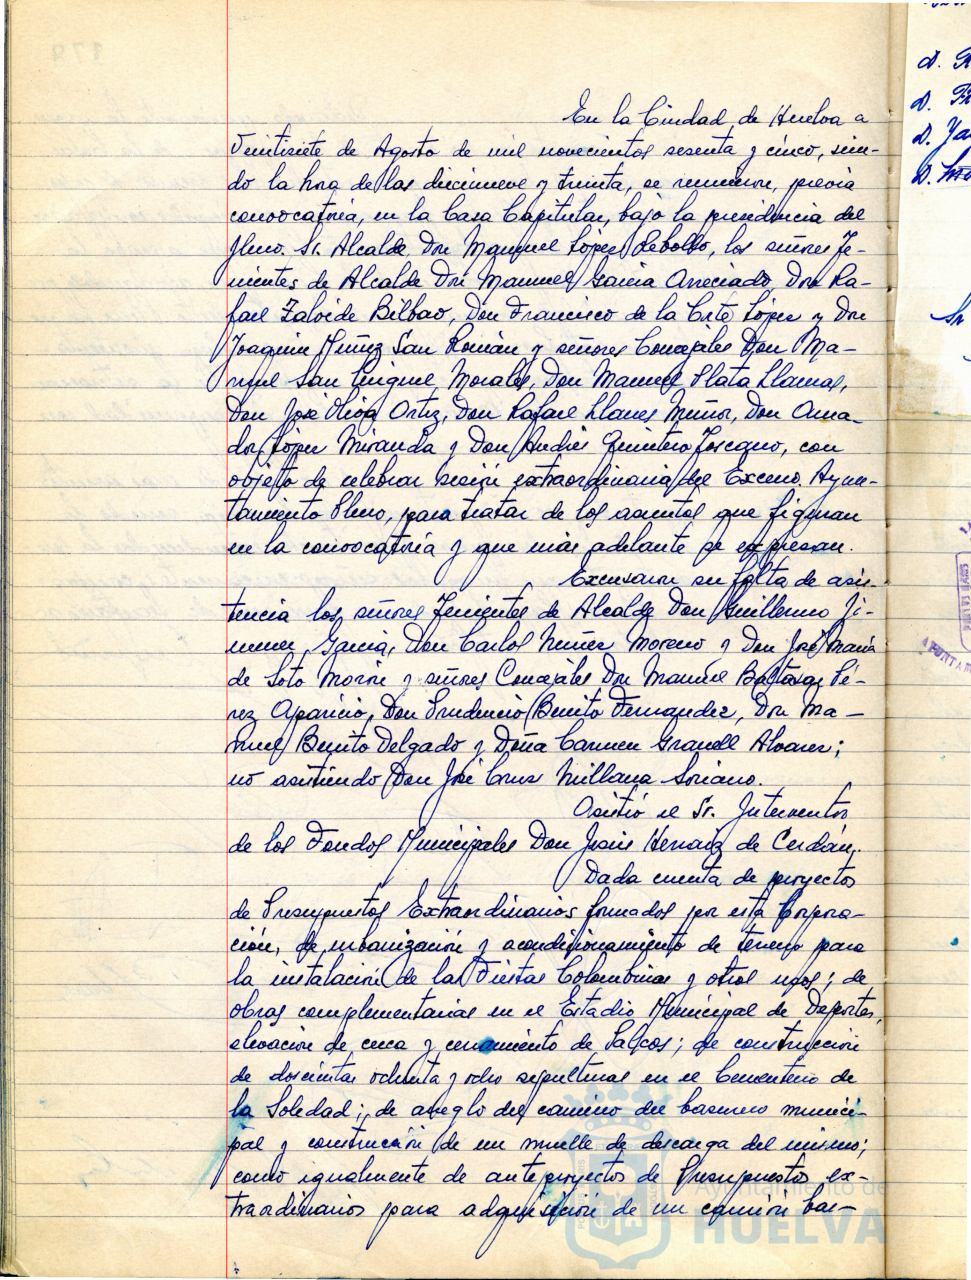 En la Ciudad de Huelva a
veintisiete de Agosto de mil novecientos sesenta y cinco, sien-
do la hora de las diecinueve y treinta, se reunieron, previa
convocatoria, en la Casa Capitular, bajo la presidencia del
Ilmo. Sr. Alcalde, Don Manuel López Rebollo, los señores Te-
nientes de Alcalde Don Manuel Garcia Arreciado, Don Ra-
fael Zalvide Bilbao, Don Francisco de la Corte López y Don
Joaquin Muñiz San Román y señores Concejales Don Ma-
nuel San Miguel Morales, Don Manuel Plata Llamas,
Don José Oliva Ortiz, Don Rafael Llanes Muñoz, Don Ama-
dor López Miranda y Don Andrés Quintero Toscano, con
objeto de celebrar sesión extraordinaria del Excmo. Ayun-
tamiento Pleno, para tratar de los asuntos que figuran
en la convocatoria y que más adelante se expresan.
Excusaron su falta de asis-
tencia los señores Tenientes de Alcalde Don Guillermo Ji-
menez Garcia, Don Carlos Nuñez Moreno y Don José Maria
de Soto Morón y señores Concejales Don Manuel Baltasar Pé-
rez Aparicio, Don Prudencio Benito Fernandez, Don Ma-
nuel Benito Delgado y Doña Carmen Granell Alvarez;
no asistiendo Don José Cruz Millana Soriano.
Asistió el Sr. Interventor
de los Fondos Municipales Don Jesús Hernaiz de Cerdán.
Dada cuenta de proyectos
de Presupuestos Extraordinarios formados por esta Corpora-
ción, de urbanización y acondicionamiento de terreno para
la instalación de las Fiestas Colombinas y otros usos; de
obras complementarias en el Estadio Municipal de Deportes,
elevación de cerca y cerramiento de Palcos; de construcción
de doscientas ochenta y ocho sepulturas en el Cementerio de
la Soledad; de arreglo del camino del basurero munici-
pal y construcción de un muelle de descarga del mismo;
como igualmente de anteproyectos de Presupuestos ex-
traordinarios para adquisición de un camión bas-
Ayuntamiento de
HUELVA